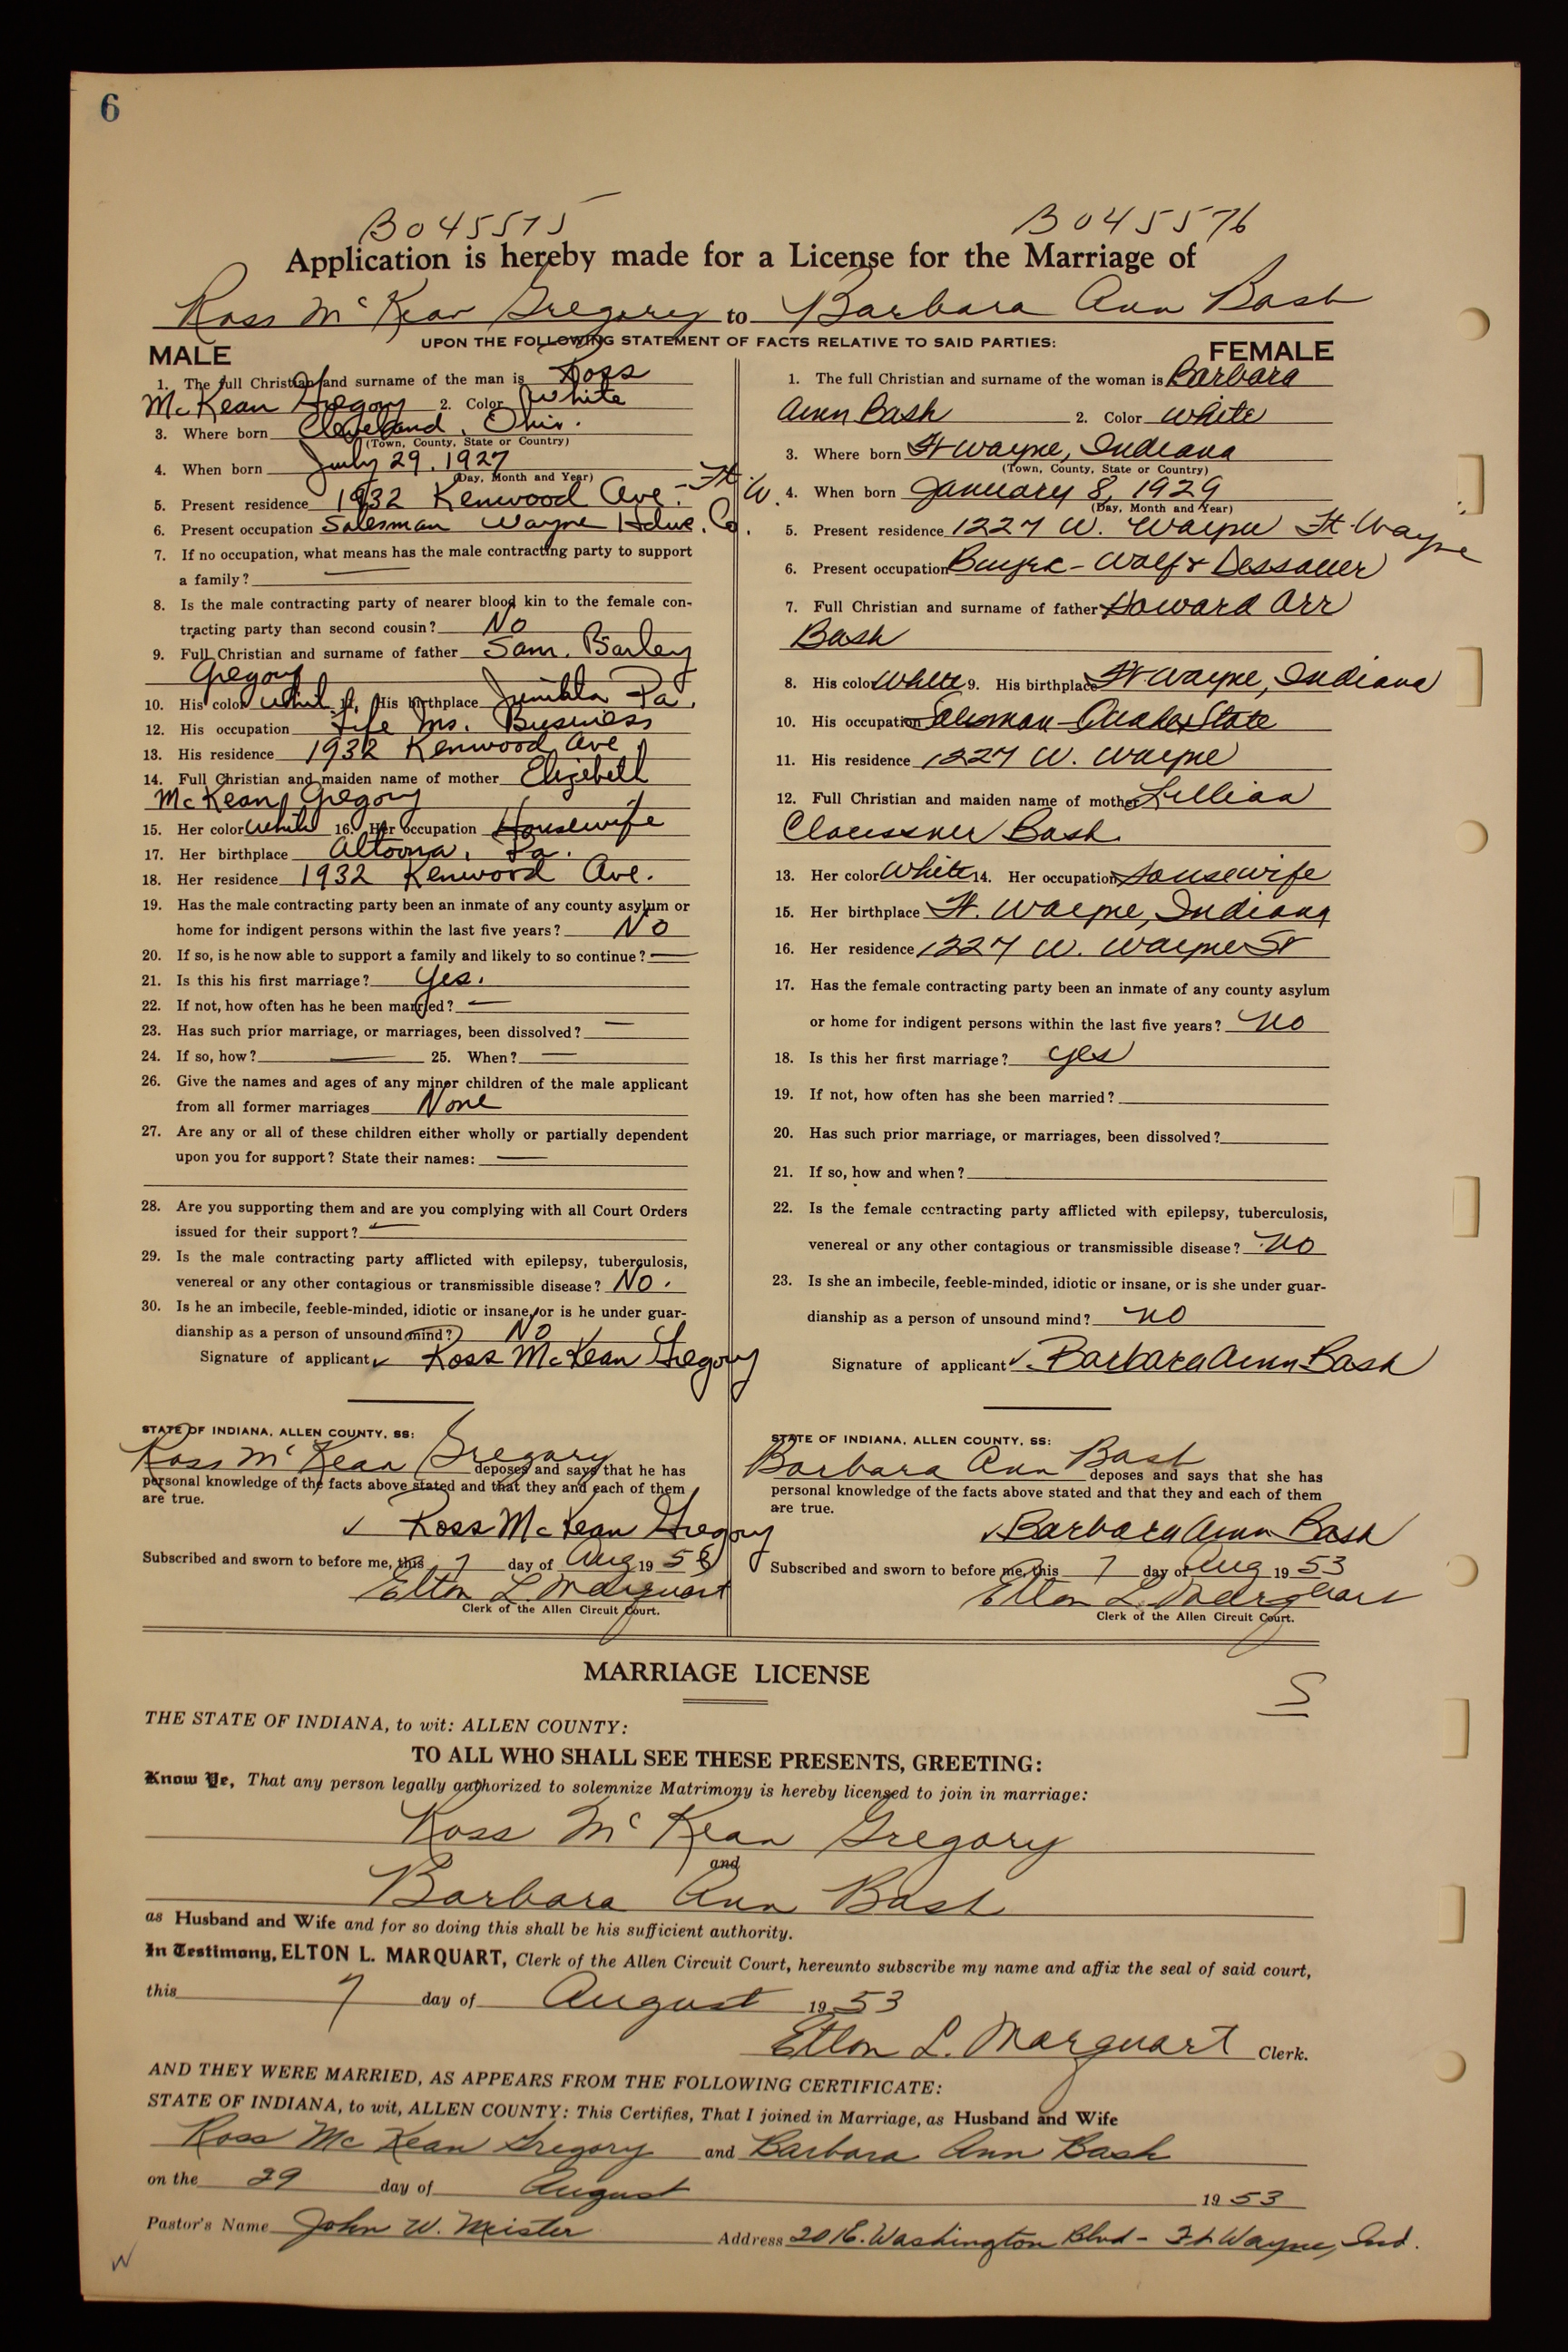 6
B045575 B045576
Application is hereby made for a License for the Marriage of
Ross Mc Kean Gregory to Barbara Ann Bash
UPON THE FOLLOWING STATEMENT OF FACTS RELATIVE TO SAID PARTIES:
MALE
1. The full Christian and surname of the man is Ross
McKean Gregory 2. Color White
3. Where born Cleveland, Ohio.
(Town, County, State or Country)
4. When born July 29, 1927
(Day, Month and Year)
5. Present residence 1932 Kenwood Ave. - Ft. W.
6. Present occupation Salesman Wayne Hdwe. Co.
7. If no occupation, what means has the male contracting party to support
a family?
8. Is the male contracting party of nearer blood kin to the female con-
tracting party than second cousin? No
9. Full Christian and surname of father Sam.
Gregory
10. His color White 11. His birthplace Pa.
12. His occupation Life Ins. Business
13. His residence 1932 Kenwood Ave
14. Full Christian and maiden name of mother Elizabeth
McKean Gregory
15. Her color White 16. Her occupation Housewife
17. Her birthplace Altoona, Pa.
18. Her residence 1932 Kenwood Ave.
19. Has the male contracting party been an inmate of any county asylum or
home for indigent persons within the last five years? No
20. If so, is he now able to support a family and likely to so continue? —
21. Is this his first marriage? Yes.
22. If not, how often has he been married? —
23. Has such prior marriage, or marriages, been dissolved? —
24. If so, how? — 25. When? —
26. Give the names and ages of any minor children of the male applicant
from all former marriages None
27. Are any or all of these children either wholly or partially dependent
upon you for support? State their names: —
28. Are you supporting them and are you complying with all Court Orders
issued for their support? —
29. Is the male contracting party afflicted with epilepsy, tuberculosis,
venereal or any other contagious or transmissible disease? No.
30. Is he an imbecile, feeble-minded, idiotic or insane, or is he under guar-
dianship as a person of unsound mind? No
Signature of applicant Ross McKean Gregory
STATE OF INDIANA, ALLEN COUNTY, SS:
Ross Mc Kean Gregory deposes and says that he has
personal knowledge of the facts above stated and that they and each of them
are true.
Ross McKean Gregory
Subscribed and sworn to before me, this 7 day of Aug 1953
Elton L. Marquart
Clerk of the Allen Circuit Court.
FEMALE
1. The full Christian and surname of the woman is Barbara
Ann Bash 2. Color White
3. Where born Ft Wayne, Indiana
(Town, County, State or Country)
4. When born January 8, 1929
(Day, Month and Year)
5. Present residence 1227 W. Wayne Ft Wayne
6. Present occupation Buyer - Wolf & Dessauer
7. Full Christian and surname of father Howard Orr
Bash
8. His color White 9. His birthplace Ft Wayne, Indiana
10. His occupation Salesman - Quaker State
11. His residence 1227 W. Wayne
12. Full Christian and maiden name of mother Lillian
Claussner Bash.
13. Her color White 14. Her occupation Housewife
15. Her birthplace Ft. Wayne, Indiana
16. Her residence 1227 W. Wayne St
17. Has the female contracting party been an inmate of any county asylum
or home for indigent persons within the last five years? No
18. Is this her first marriage? yes
19. If not, how often has she been married?
20. Has such prior marriage, or marriages, been dissolved?
21. If so, how and when?
22. Is the female contracting party afflicted with epilepsy, tuberculosis,
venereal or any other contagious or transmissible disease? No
23. Is she an imbecile, feeble-minded, idiotic or insane, or is she under guar-
dianship as a person of unsound mind? no
Signature of applicant Barbara Ann Bash
STATE OF INDIANA, ALLEN COUNTY, SS:
Barbara Ann Bash deposes and says that she has
personal knowledge of the facts above stated and that they and each of them
are true.
Barbara Ann Bash
Subscribed and sworn to before me, this 7 day of Aug 1953
Elton L. Marquart
Clerk of the Allen Circuit Court.
MARRIAGE LICENSE
S
THE STATE OF INDIANA, to wit: ALLEN COUNTY:
TO ALL WHO SHALL SEE THESE PRESENTS, GREETING:
Know Ye, That any person legally authorized to solemnize Matrimony is hereby licensed to join in marriage:
Ross Mc Kean Gregory
and
Barbara Ann Bash
as Husband and Wife and for so doing this shall be his sufficient authority.
In Testimony, ELTON L. MARQUART, Clerk of the Allen Circuit Court, hereunto subscribe my name and affix the seal of said court,
this 7 day of August 1953
Elton L. Marquart Clerk.
AND THEY WERE MARRIED, AS APPEARS FROM THE FOLLOWING CERTIFICATE:
STATE OF INDIANA, to wit, ALLEN COUNTY: This Certifies, That I joined in Marriage, as Husband and Wife
Ross Mc Kean Gregory and Barbara Ann Bash
on the 29 day of August 1953
Pastor's Name John W. Meister Address 201 E. Washington Blvd - Ft Wayne, Ind.
W